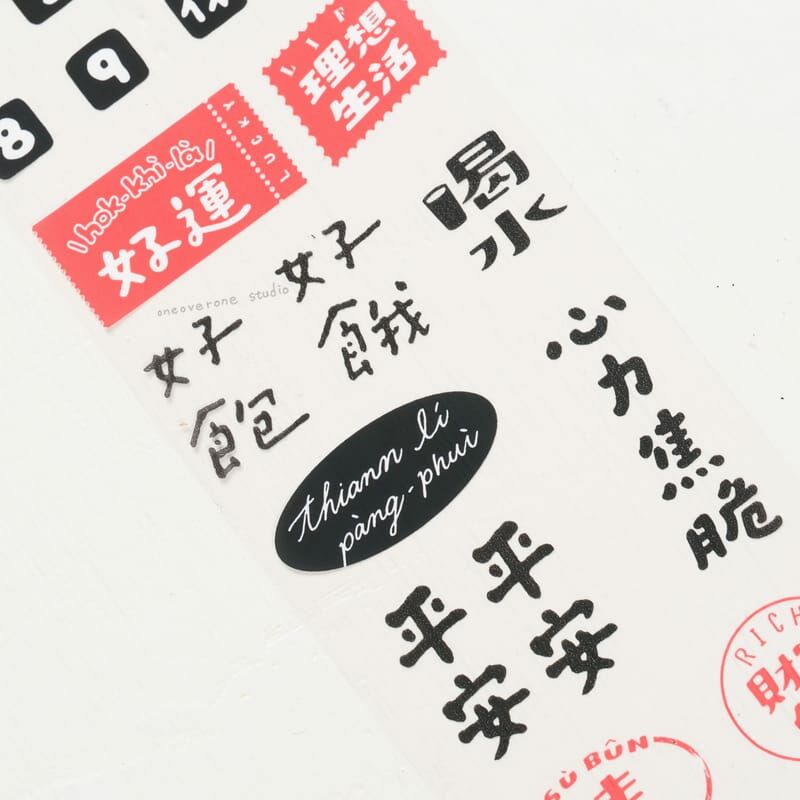 9
8
LIF
理想
生活
LUCKY
\hok-khì-là/
好運
喝
水
oneoverone studio
好
餓
好
飽
心力焦脆
thiann lí
pàng-phuì
平安
平安
RICH
財
SÙ BÛN